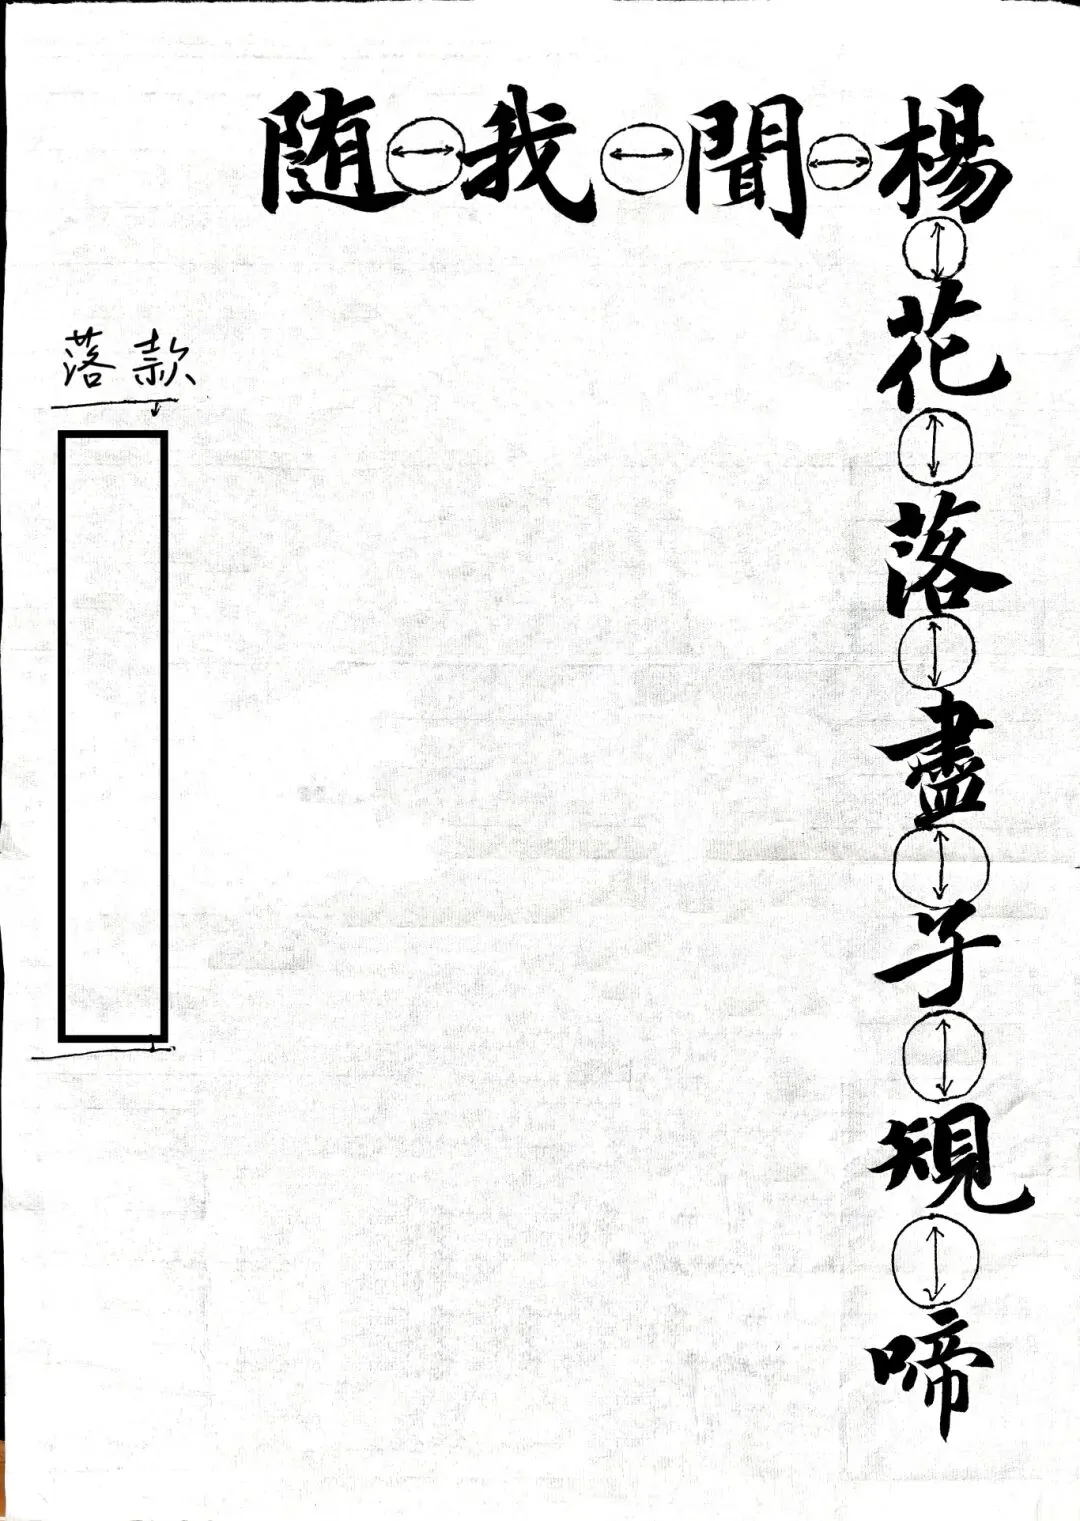 楊花落盡子規啼
聞
我
随
落款